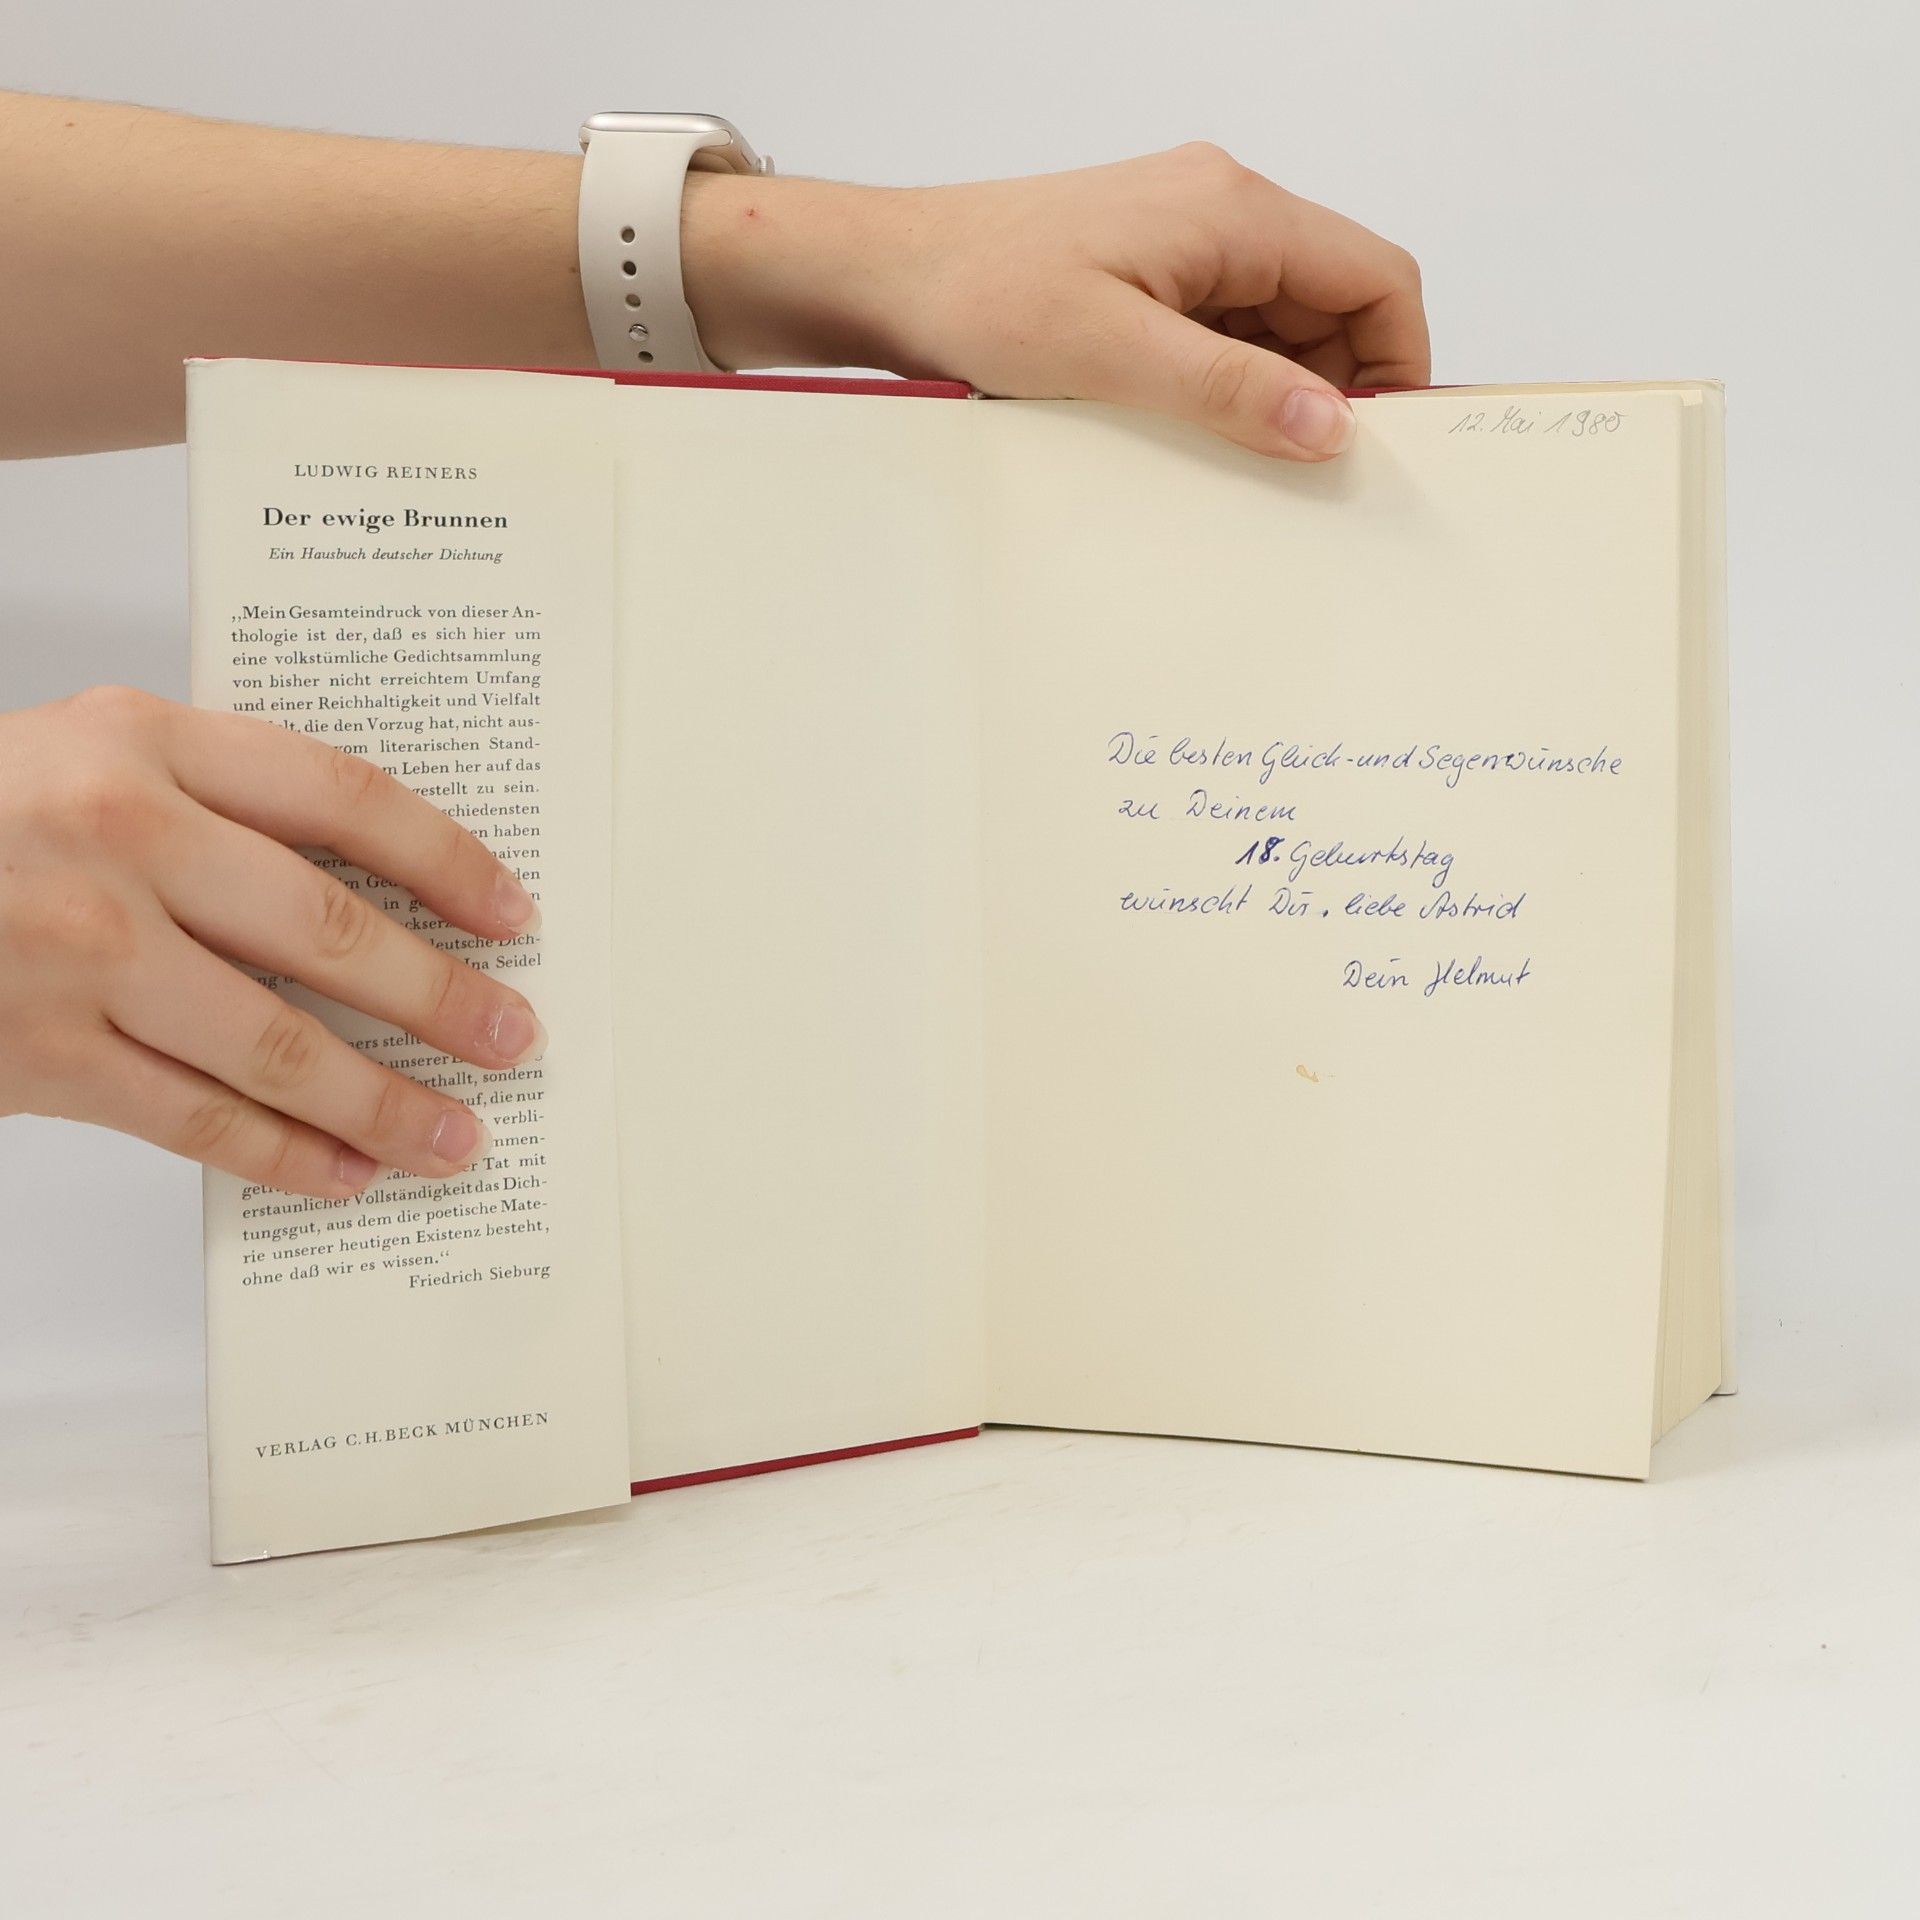 LUDWIG REINERS
Der ewige Brunnen
Ein Hausbuch deutscher Dichtung
„Mein Gesamteindruck von dieser An-
thologie ist der, daß es sich hier um
eine volkstümliche Gedichtsammlung
von bisher nicht erreichtem Umfang
und einer Reichhaltigkeit und Vielfalt
die den Vorzug hat, nicht aus-
vom literarischen Stand-
Leben her auf das
gestellt zu sein.
schiedensten
haben
naiven
den
in
deutsche Dich-
Ina Seidel
stellt
unserer
forthallt, sondern
auf, die nur
verbli-
mmen-
Tat mit
erstaunlicher Vollständigkeit das Dich-
tungsgut, aus dem die poetische Mate-
rie unserer heutigen Existenz besteht,
ohne daß wir es wissen.“
Friedrich Sieburg
VERLAG C.H.BECK MÜNCHEN
12. Mai 1980
Die besten Glück-und Segenwünsche
zu Deinem
18. Geburtstag
wünscht Dir, liebe Astrid
Dein Helmut